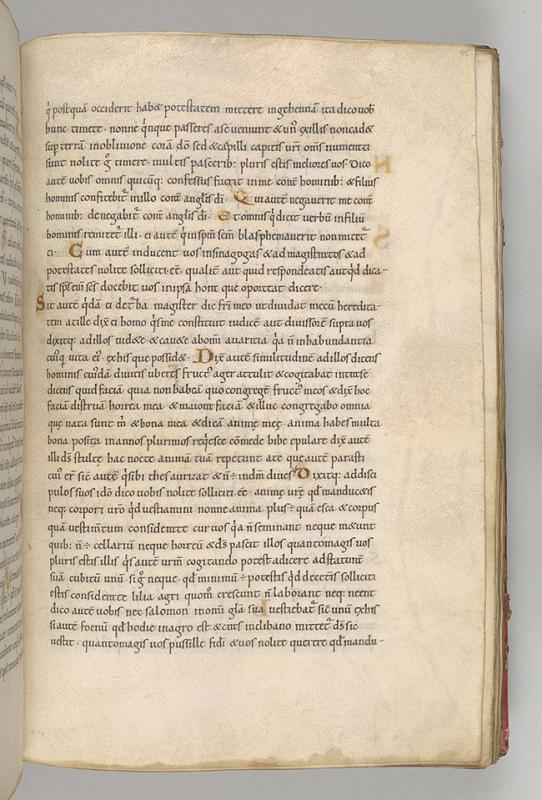 q̄ postquā occiderit habet potestatem mittere ingehennā ita dico uob
hunc timete. nonne q̇nque passeres aseueniunt & un̄ exillis noncad&
sup terrā inobliuione corā dō sed & capilli capitis urī om̄s numerati
sunt nolite g̊ timere. multis passerib: pluris estis meliores uos Dico
autē uobis omnis quicūq: confessus fuerit inme corā hominib: & filius
hominis confitebit̄ inillo corā anglis dī. Qui autē negauerit me corā
hominib: denegabit̄ corā anglis dī. Et omnis q̇ dicit uerbū infiliū
hominis remittet̄ illi. ei autē q̇ inspm̄ scm̄ blasphemauerit non mittet̄
ei. Cum autē inducent uos insinagogas & ad magistratus & ad
potestates nolite solliciti eē. qualit̄ aut quid respondeatis aut qd dica-
tis sps̄ em̄ scs̄ docebit uos inipsa hora que oporteat dicere.
Ait autē q̇dā ei de turba magister dic frī meo ut diuidat mecū heredita-
tem at ille dix̄ ei homo q̇s me constituit iudicē aut diuisorē supra uos
dixitq: ad illos uid&e & cau&e ab om̄i auaritia q̄a n̄ inhabundantia
cui'q uita ei' exhis que possid&. Dix̄ autē similitudinē ad illos dicens
hominis cui'dā diuitis uberes fruct' ager attulit & cogitabat intrase
dicens quid faciā quia non habeā quo congregē fruct' meos & dix̄ hoc
faciā distruā horrea mea & maiora faciā & illuc congregabo omnia
que nata sunt m̄ & bona mea & dicā anime meę. anima habes multa
bona posita inannos plurimos req̇esce cōmede bibe epulare dix̄ autē
illi ds̄ stulte hac nocte animā tuā repetunt a te que autē parasti
cui' er̄ sic autē q̇ sibi thesaurizat & n̄ ÷ indm̄ diues Dixitq: ad disci
pulos suos idō dico uobis nolite solliciti eē. anime urę qd manducetis
neq: corpori uro qd uestiamini nonne anima plus ÷ quā esca & corpus
quā uestimtum considerate coruos q̄a n̄ seminant neque m&unt
quib: n̄ ÷ cellariū neque horreū & ds̄ pascit illos quantomagis uos
pluris estis illis q̇s autē urm̄ cogitando potest adicere adstaturā
suā cubitū unū si g̊ neque. qd minimū ÷ potestis qd deceteris solliciti
estis considerate lilia agri quom̄ crescunt n̄ laborant neq: neent
dico autē uobis nec salomon inomī gla sua uestiebat̄ sic unū exhis
si autē foenū qd hodie inagro est & cras inclibano mittet̄ ds̄ sic
uestit. quantomagis uos pussille fidi & uos nolite querere qd mandu-